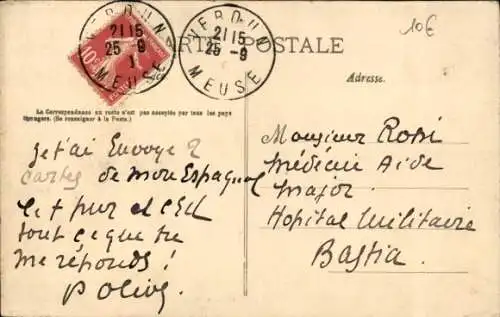 10€
VERDUN
21 15
25 - 9
MEUSE
VERDUN
21 15
25 - 9
MEUSE
10c
CARTE POSTALE
Adresse.
La Correspondance au recto n'est pas acceptée par tous les pays
étrangers. (Se renseigner à la Poste.)
Je t'ai Envoyé 2
cartes de mon Espagnol
tout ce que tu
me réponds!
Monsieur Rossi
Médecin Aide
Major
Hopital Militaire
Bastia